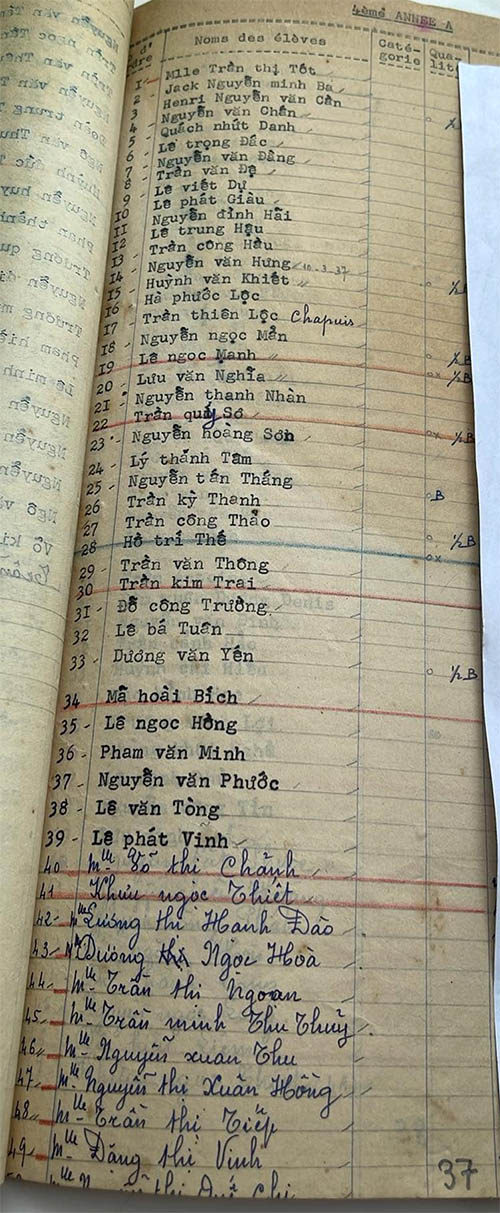 4ème ANNEE A
Noms des élèves Caté- Qua-
gorie lité
1 - Mlle Trần thị Tốt
2 - Jack Nguyễn minh Ba
3 Henri Nguyễn văn Cần
4 - Nguyễn văn Chấn
5 - Quách nhút Danh
6 - Lê trọng Đắc
7 - Nguyễn văn Đặng
8 - Trần văn Đệ
9 - Lê viết Dự
10 Lê phát Giàu
11 Nguyễn đình Hãi
12 Lê trung Hậu
13 - Trần công Hầu
14 - Nguyễn văn Hưng 10.3.37
15 - Huỳnh văn Khiết 1/2 B
16 - Hà phước Lộc
17 - Trần thiên Lộc Chapuis
18 - Nguyễn ngọc Mẫn
19 Lê ngọc Mạnh 1/2 B
20 - Lưu văn Nghĩa ox 1/2 B
21 - Nguyễn thanh Nhàn
22 Trần quý Sơ
23 - Nguyễn hoàng Sơn ox 1/2 B
24 - Lý thánh Tâm
25 - Nguyễn tấn Thắng
26 Trần kỳ Thanh B
27 Trần công Thảo
28 Hồ trí Thế 1/2 B
29 - Trần văn Thông ox
30 Trần kim Trai
31 - Đỗ công Trường
32 Lê bá Tuân
33 - Dương văn Yến 1/2 B
34 Mã hoài Bích
35 - Lê ngọc Hồng
36 - Pham văn Minh
37 - Nguyễn văn Phước
38 - Lê văn Tòng
39 - Lê phát Vinh
40 Mlle Võ thị Chánh
41 Khưu ngọc Thiết
42 - Mlle Lương thị Hạnh Đào
43 - Mlle Dương Ngọc Hoà
44 Mlle Trần thị Ngoan
45 Mlle Trần minh Thu Thủy
46 Mlle Nguyễn xuân Thu
47 Mlle Nguyễn thị Xuân Hồng
48 Mlle Trần thị Tiếp
49 - Mlle Đặng thị Vinh
37